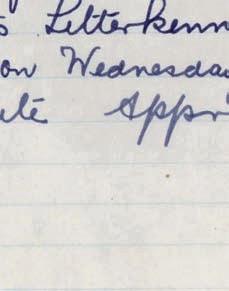 Letterkenn
on Wednesday
Appr